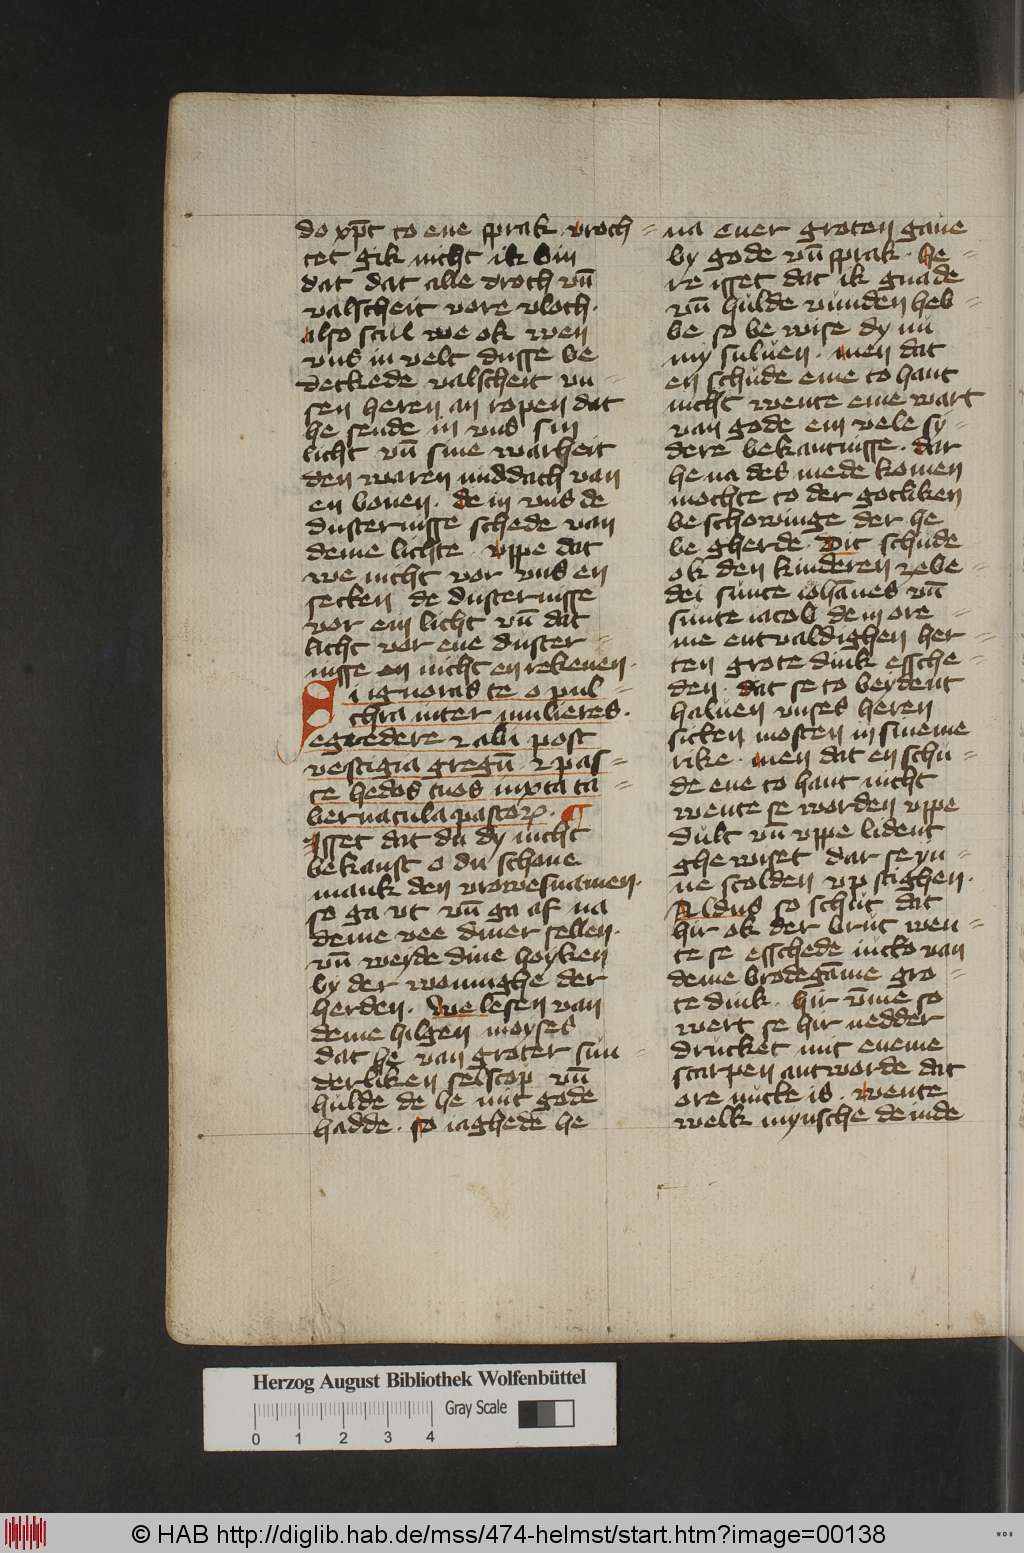 do xp̄c to ene sprak vroch=
tet gik nicht ik bin
dat dat alle droch vn̄
valscheit vore vloch.
also scul we ok wen
vns in velt dusse be
deckede valscheit vn=
sen heren an ropen dat
he sende in vns sin
licht vn̄ sine warheit
den waren middach van
en bouen. de in vns de
dusternisse schede van
deme lichte. vppe dat
we nicht vor vns en
secken de dusternisse
vor ein licht vn̄ dat
licht vor ene duster=
nisse en nicht en rekenen.
Si ignoras te o pul=
chra inter mulieres.
egredere ⁊ abi post
vestigia gregū ⁊ pas=
ce hedos tuos iuxta ta=
bernacula pastoꝝ. ¶
Isset dat du dy nicht
bekanst o du schone
mank den vrowesnamen.
so ga vt vn̄ ga af na
deme vee diner sellen.
vn̄ weyde dine hoyken
by der woninghe der
herden. We lesen van
deme hilgen moyses
dat he van groter sun=
derliken selscop vn̄
hulde de he mit gode
hadde. so iaghede he
na ener groten gaue
by gode vn̄ sprak. he=
re isset dat ik gnade
vn̄ hulde vunden heb=
be so be wise dy nu
my suluen. men dat
en schude eme to hant
nicht wente eme wart
van gode ein vele sy=
dere bekantnisse. dar
he na des mede komen
mochte to der gotliken
beschowinge der he
be gherde. Dit schude
ok den kinderen zebe=
dei sunte iohānes vn̄
sunte iacob dem ore=
me entvaldighen her=
ten grote dink essche=
den. dat se to beydent
haluen vnses heren
sitten mosten in sineme
rike. men dat en schu=
de ene to hant nicht
wente se worden vppe
dult vn̄ vppe lident
ghe wiset dar se yn=
ne scolden vp stighen.
Aldus so schut dat
hir ok der brut wen=
te se esschede iucto van
deme brodegāme gro=
te dink. hir v̄me so
wert se hir nedder
drucket mit eneme
scarpen antworde dat
ore nutte is. wente
welk mynsche de inde
Herzog August Bibliothek Wolfenbüttel
Gray Scale
0 1 2 3 4
© HAB http://diglib.hab.de/mss/474-helmst/start.htm?image=00138